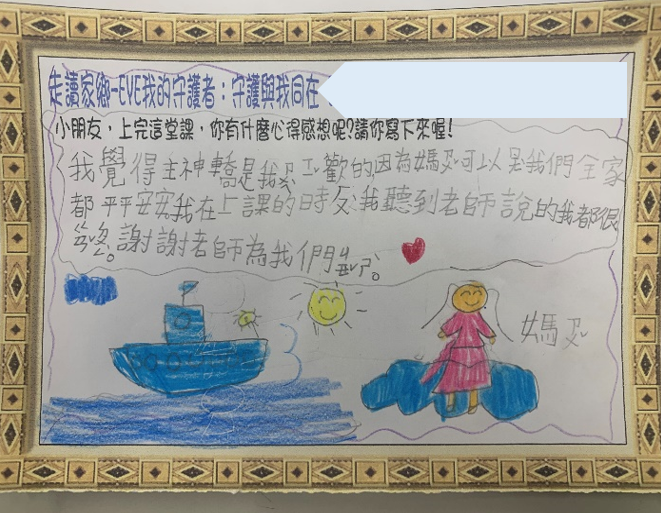 走讀家鄉-EYE我的守護者：守護與我同在
小朋友，上完這堂課，你有什麼心得感想呢?請你寫下來喔!
我覺得主神轎是我喜歡的因為媽可以呆我們全家
都平平安安我在上課的時 我聽到老師說的我都很
謝謝老師為我們
媽